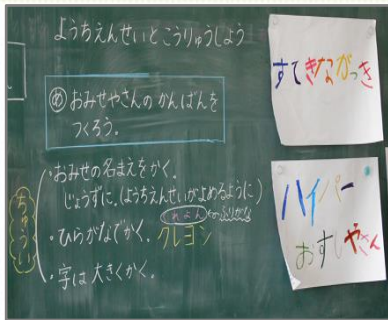 ようちえんせいとこうりゅうしよう
め おみせやさんのかんばんを
つくろう。
ちゅうい
・おみせの名まえをかく。
じょうずに。(ようちえんせいがよめるように)
くれよん ←ふりがな
・ひらがなでかく。クレヨン
・字は大きくかく。
すてきながっき
ハイパー
おすしやさん